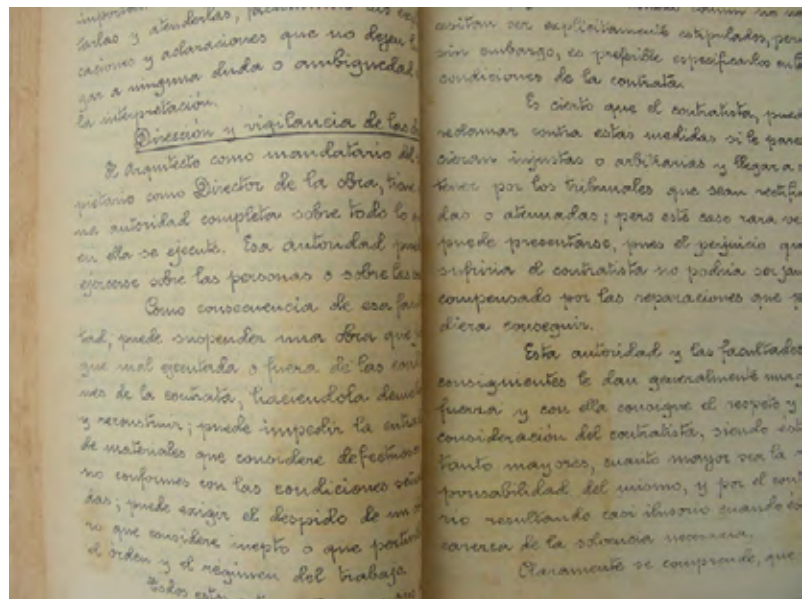 tarlas y atenderlas,
caciones y aclaraciones que no dejen lu
gar a ninguna duda o ambigüedad
la interpretación.
Dirección y vigilancia de las
El Arquitecto como mandatario del
pietario como Director de la obra, tiene
na autoridad completa sobre todo lo
en ella se ejecute. Esa autoridad pue
ejercerse sobre las personas o sobre las
Como consecuencia de esa facul
tad, puede suspender una obra que
gue mal ejecutada o fuera de las condi
nes de la contrata, haciendola demoler
y reconstruir; puede impedir la entra
de materiales que considere defectuosos
no conformes con las condiciones seña
das; puede exigir el despido de un
ro que considere inepto o que pertur
el orden y el regimen del trabajo.
Todos
cesitan ser explicitamente estipulados, pero
sin embargo, es preferible especificarlos en
condiciones de la contrata.
Es cierto que el contratista, puede
reclamar contra estas medidas si le pare
cieran injustas o arbitrarias y llegar a
tener por los tribunales que sean rectifi
das o atenuadas; pero esté caso rara ve
puede presentarse, pues el perjuicio que
sufriria el contratista no podria ser jam
compensado por las reparaciones que p
diera conseguir.
Esta autoridad y las facultades
consiguientes le dan generalmente
fuerza y con ella consigue el respeto y
consideración del contratista, siendo est
tanto mayores, cuanto mayor sea la r
ponsabilidad del mismo, y por el cont
rio resultando casi ilusorio cuando és
carezca de la solvencia necesaria.
Claramente se comprende, que